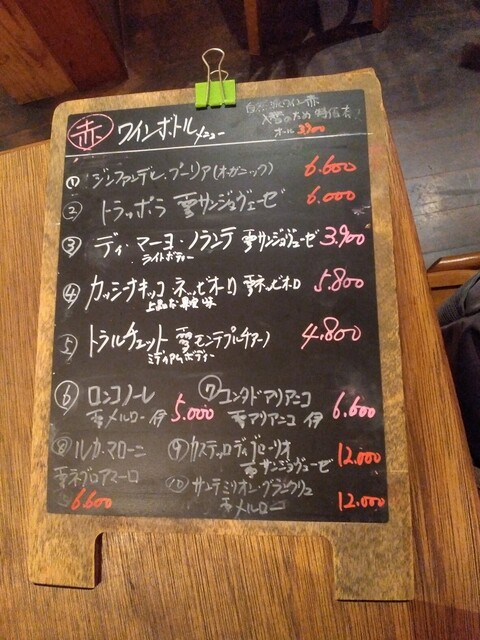 赤 ワインボトルメニュー
自然派ワイン赤
入替のため特価有!
オール3,900
① ジンファンデル・プーリア(オーガニック) 6.600
② トラッポラ サンジョヴェーゼ 6.000
③ ディ・マーヨ・ノランテ サンジョヴェーゼ 3.900
ライトボディー
④ カッシーナキッコ ネッビオーロ ネッビオロ 5.800
上品な 味
⑤ トラルチェット モンテプルチアーノ 4.800
ミディアムボディー
⑥ ロンコノーレ
メルロー 伊 5.000
⑦ コンタドアリアニコ
アリアニコ 伊 6.600
⑧ ルカ・マローニ
ネグロアマーロ
6600
⑨ カステッロディブローリオ
サンジョヴェーゼ 12.000
⑩ サンテミリオン・グランクリュ
メルロー 12.000